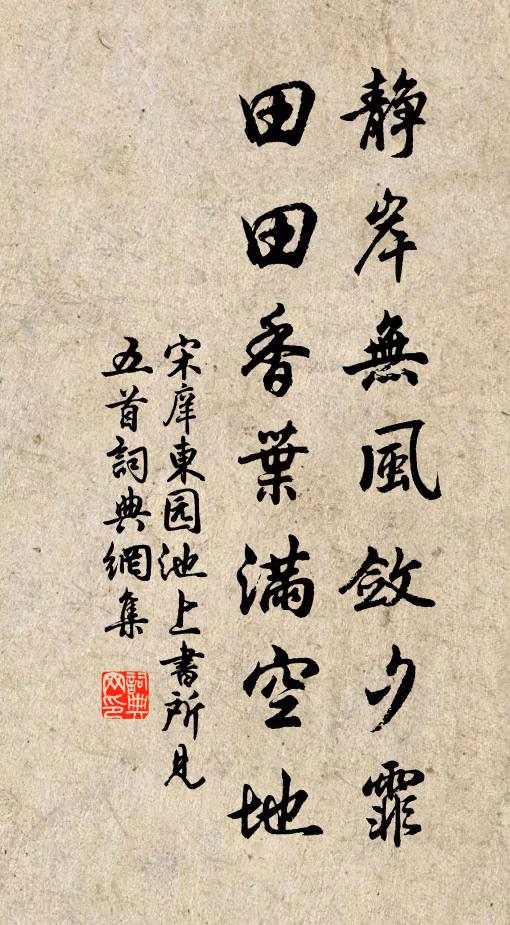 静岸無風斂夕霏
田田香葉滿空地
宋庠東园池上書所見
五首詞典網集
詞典
网印